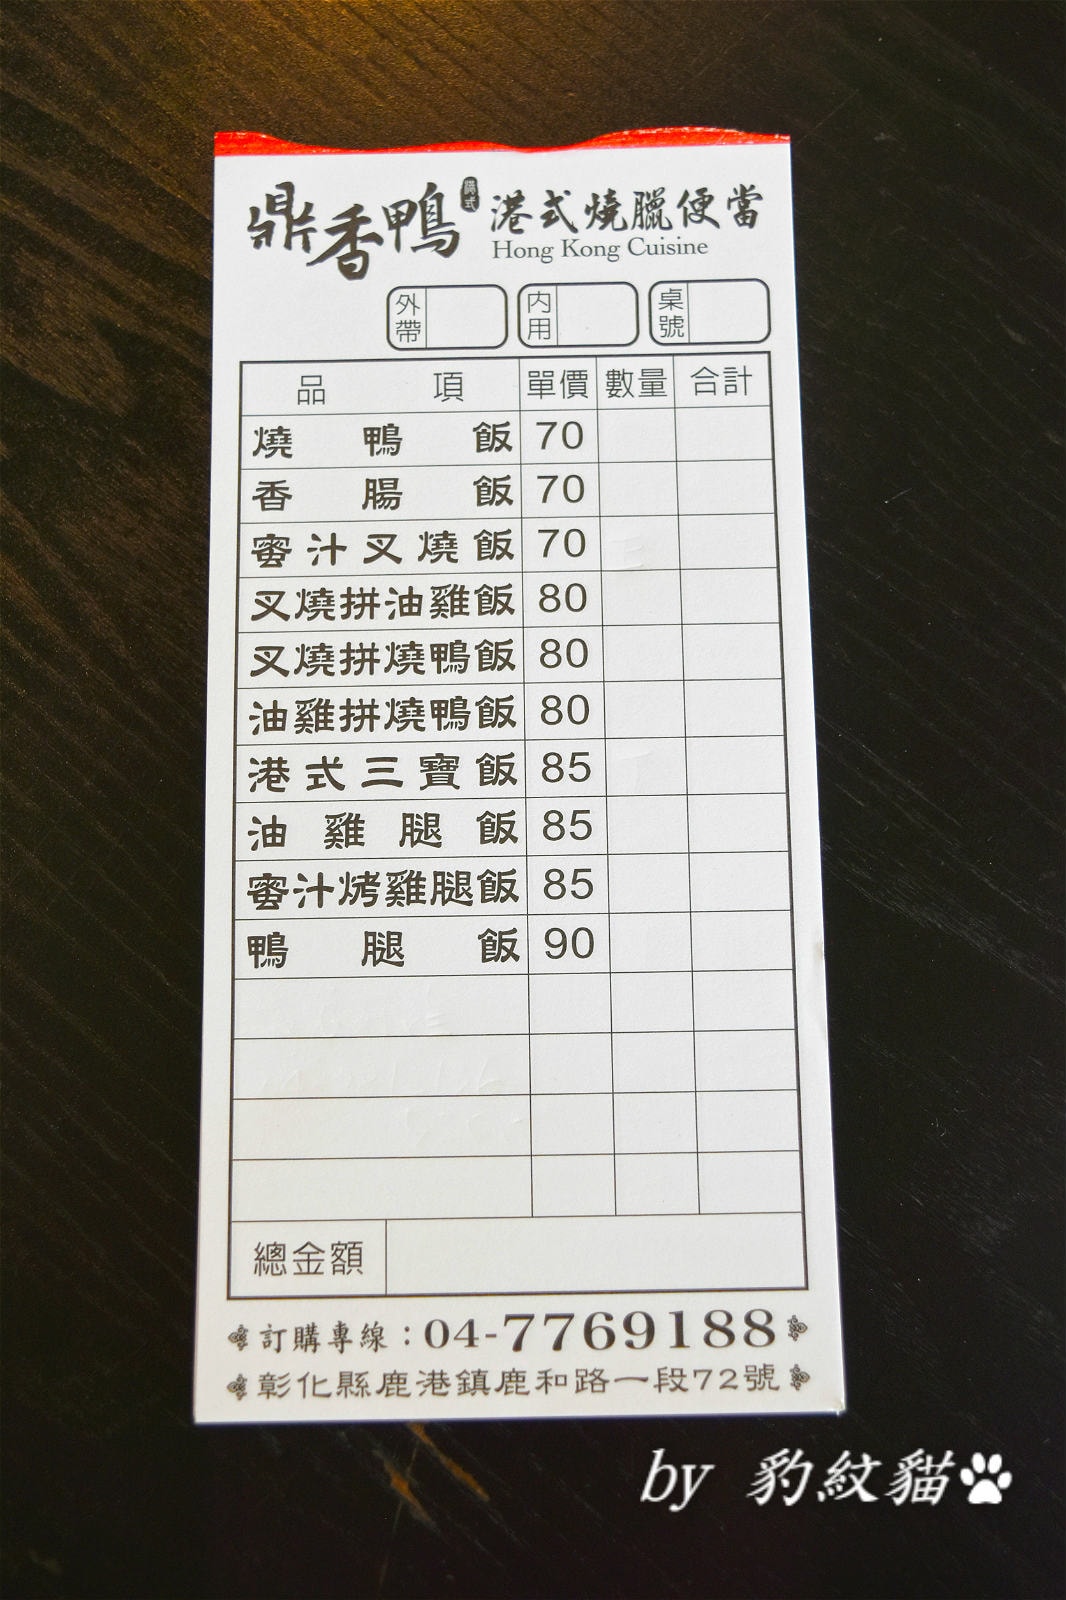 鼎香鴨 港式 港式燒臘便當
Hong Kong Cuisine
外帶 內用 桌號
品項 單價 數量 合計
燒鴨飯 70
香腸飯 70
蜜汁叉燒飯 70
叉燒拼油雞飯 80
叉燒拼燒鴨飯 80
油雞拼燒鴨飯 80
港式三寶飯 85
油雞腿飯 85
蜜汁烤雞腿飯 85
鴨腿飯 90
總金額
訂購專線：04-7769188
彰化縣鹿港鎮鹿和路一段72號
by 豹紋貓